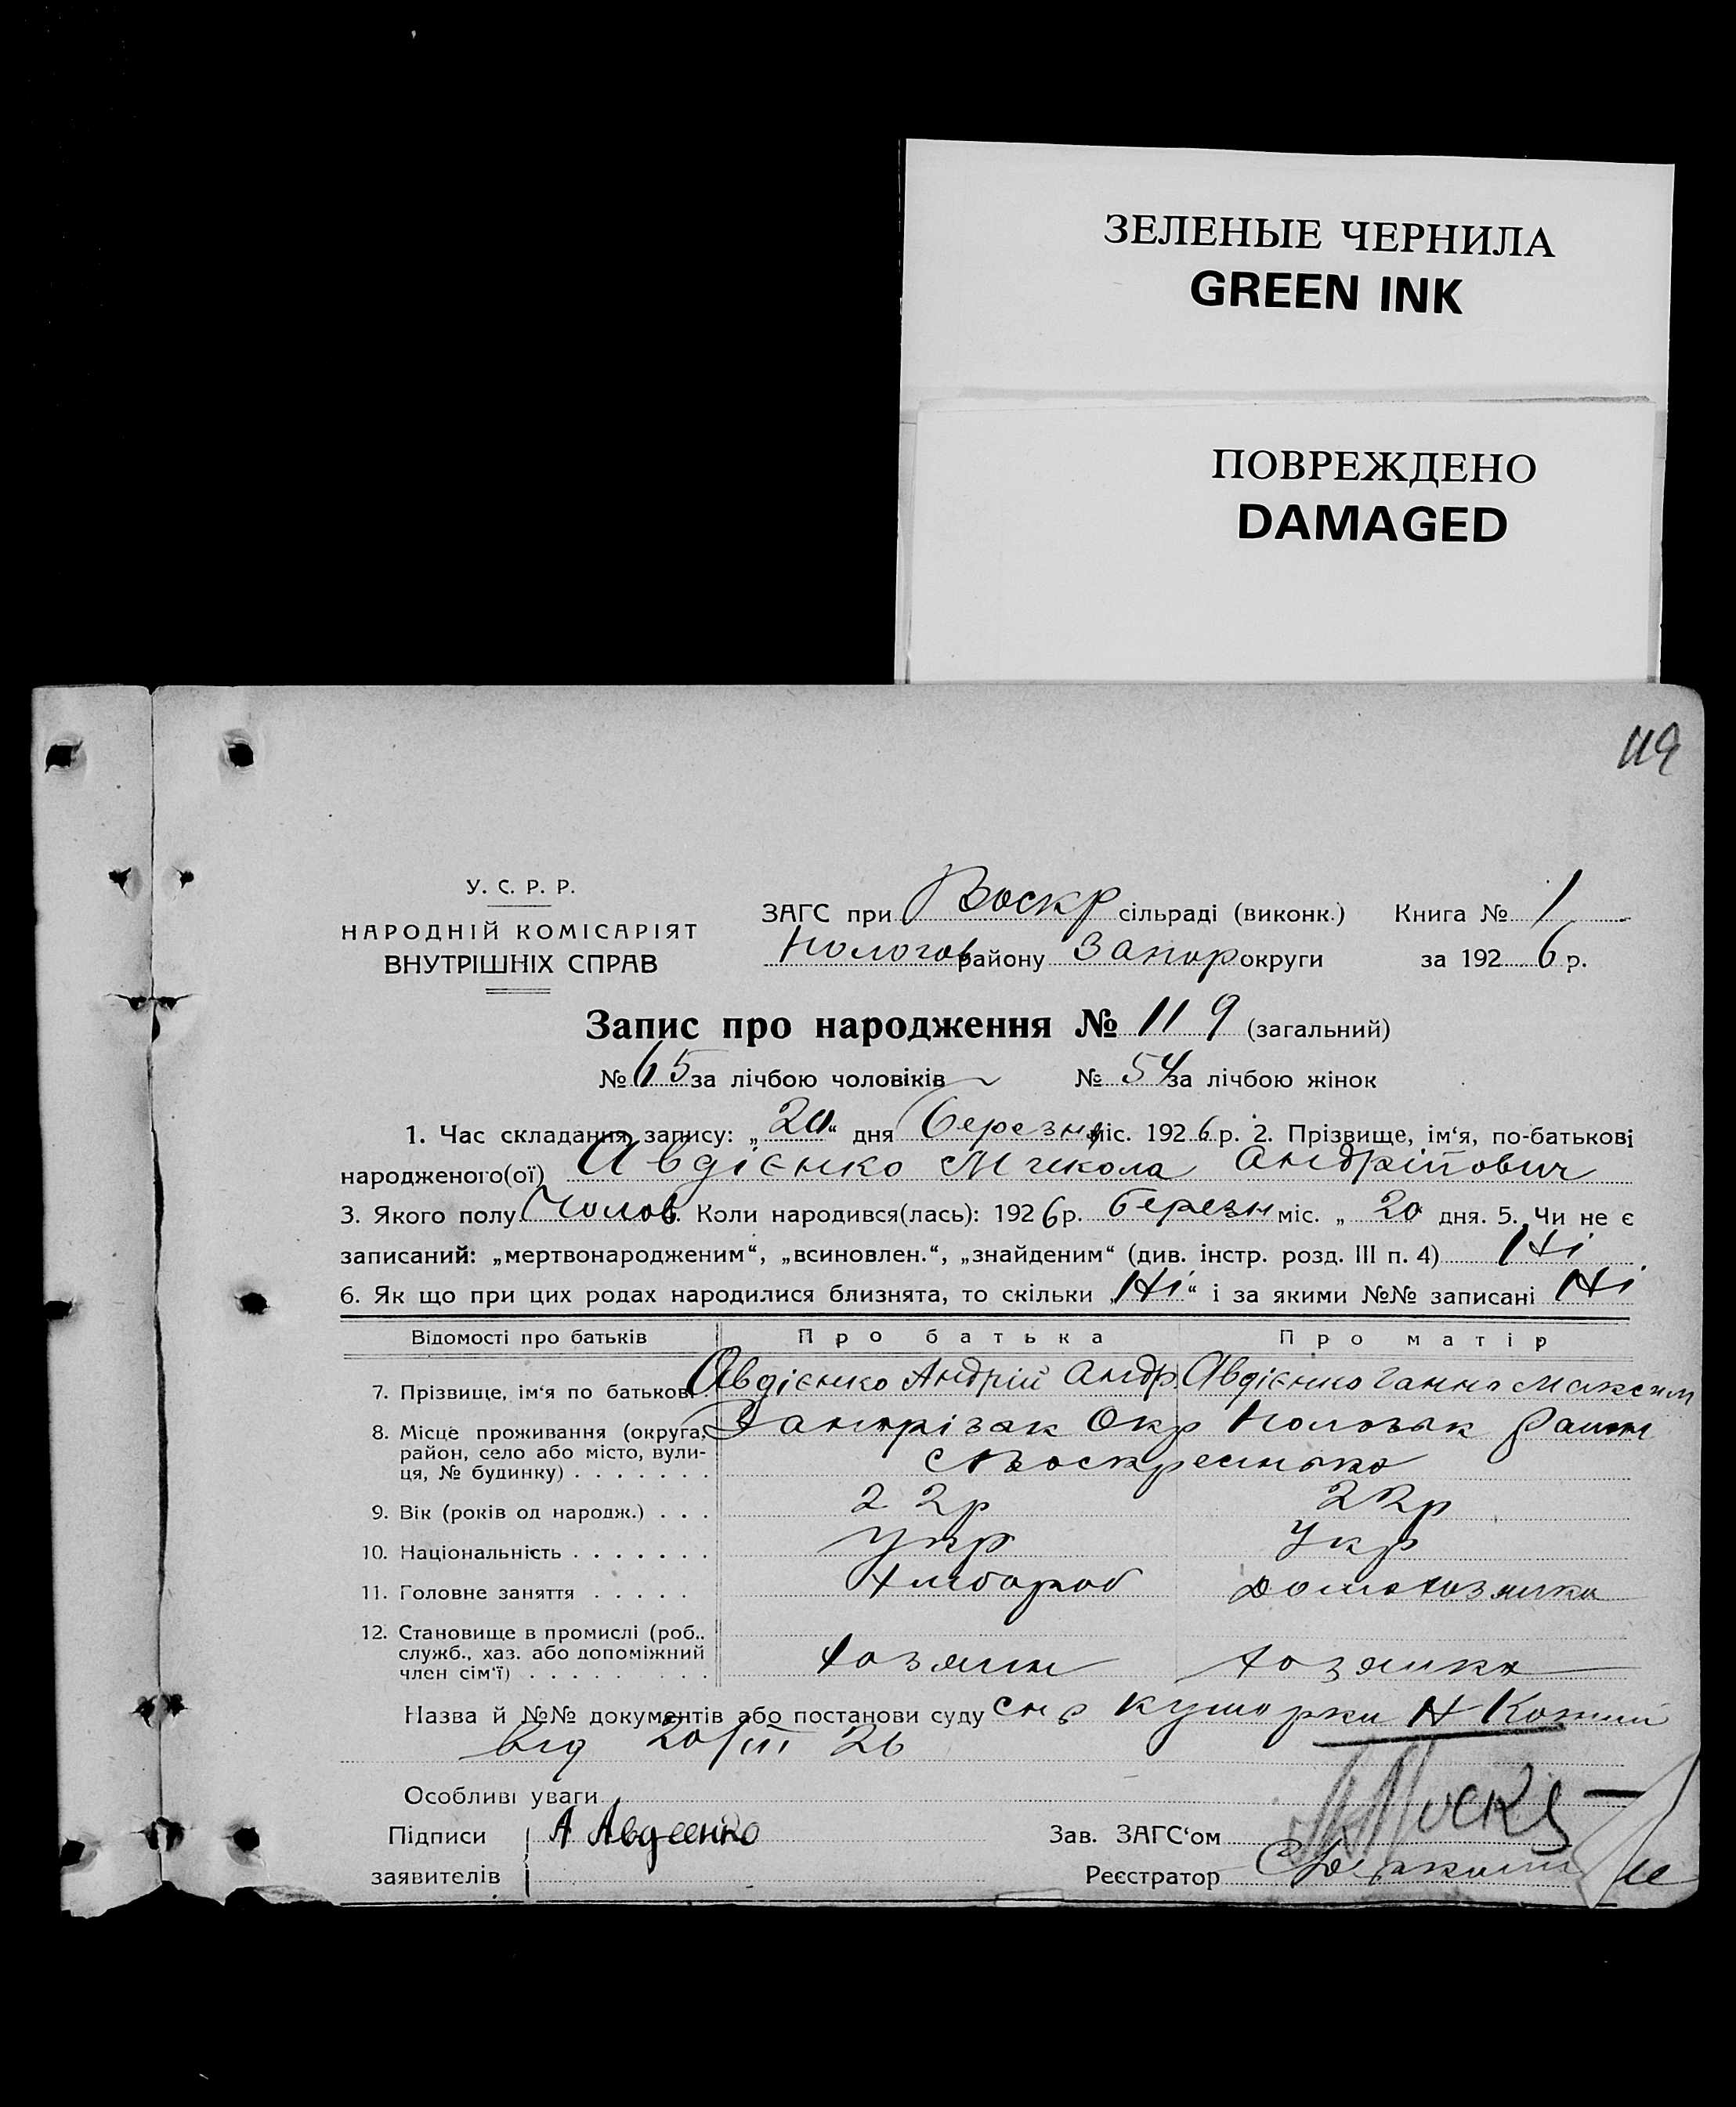 ЗЕЛЕНЫЕ ЧЕРНИЛА
GREEN INK
ПОВРЕЖДЕНО
DAMAGED
119
У. С. Р. Р.
НАРОДНІЙ КОМІСАРІЯТ
ВНУТРІШНІХ СПРАВ
ЗАГС при Воскр сільраді (виконк.) Книга № 1
Пологов району Запор округи за 1926 р.
Запис про народження № 119 (загальний)
№ 65 за лічбою чоловіків № 54 за лічбою жінок
1. Час складання запису: „20“ дня березня міс. 1926 р. 2. Прізвище, ім‘я, по-батькові
народженого(ої) Авдієнко Микола Андрійович
3. Якого полу Чолов. Коли народився(лась): 1926 р. березн міс. „ 20 дня. 5. Чи не є
записаний: „мертвонародженим“, „всиновлен.“, „знайденим“ (див. інстр. розд. III п. 4) Ні
6. Як що при цих родах народилися близнята, то скільки „Ні“ і за якими №№ записані Ні
Відомості про батьків Про батька Про матір
7. Прізвище, ім‘я по батькові. Авдієнко Андрій Андр. Авдієнко Ганна Максим
8. Місце проживання (округа, Запорізьк Окр Пологівськ Район
район, село або місто, вули-
ця, № будинку) . . . . . . . с Воскресенка
9. Вік (років од народж.) . . . 22р 22р
10. Національність . . . . . . . Укр Укр
11. Головне заняття . . . . . Хлібороб Домохозяйка
12. Становище в промислі (роб.,
служб., хаз. або допоміжний
член сім‘ї) . . . . . . . . . хозяин хозяйка
Назва й №№ документів або постанови суду
від 20/III 26
Особливі уваги
Підписи А Авдеенко Зав. ЗАГС‘ом
заявителів Реєстратор